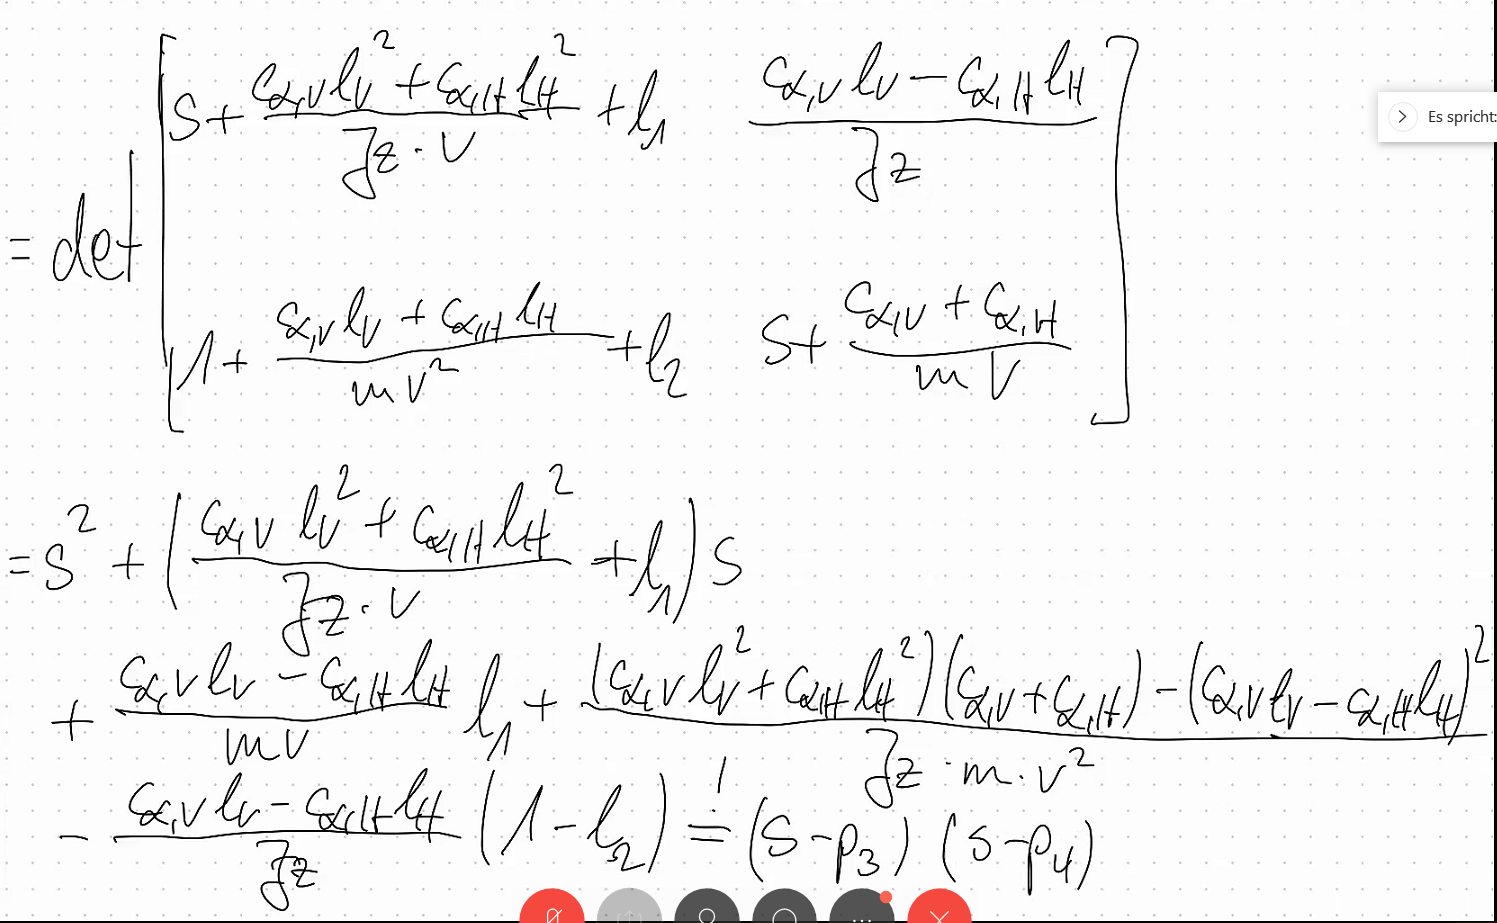 = det [ s + (c_{α,V} l_V² + c_{α,H} l_H²)/(J_z · v) + l_1    (c_{α,V} l_V − c_{α,H} l_H)/J_z ]
Es spricht:
[ 1 + (c_{α,V} l_V + c_{α,H} l_H)/(m v²) + l_2    s + (c_{α,V} + c_{α,H})/(m v) ]
= s² + ( (c_{α,V} l_V² + c_{α,H} l_H²)/(J_z · v) + l_1 ) s
+ (c_{α,V} l_V − c_{α,H} l_H)/(m v) l_1 + ( (c_{α,V} l_V² + c_{α,H} l_H²)(c_{α,V} + c_{α,H}) − (c_{α,V} l_V − c_{α,H} l_H)² )/(J_z · m · v²)
− (c_{α,V} l_V − c_{α,H} l_H)/J_z (1 − l_2) =! (s − p_3) (s − p_4)